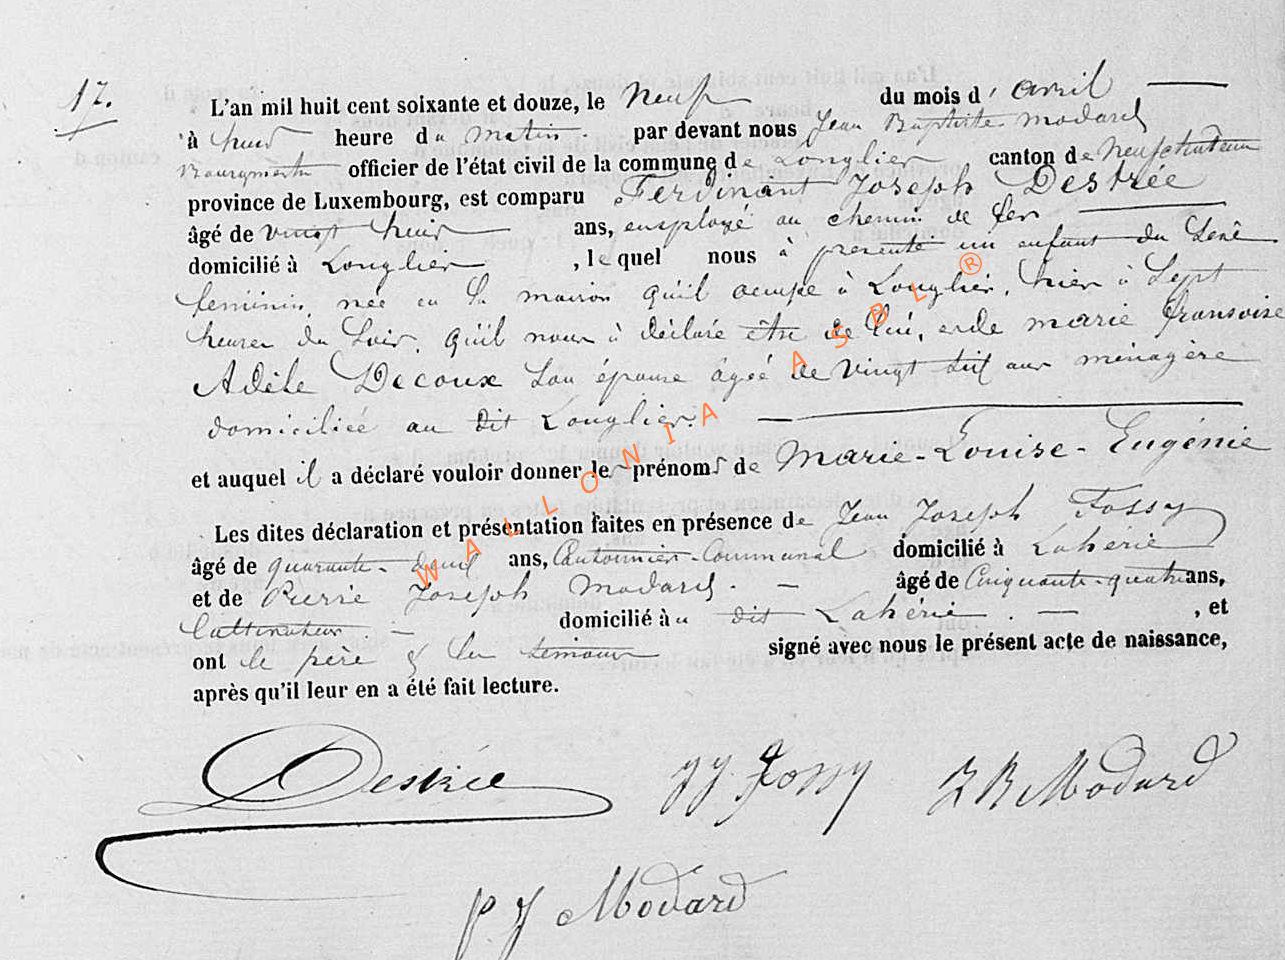 17.
L'an mil huit cent soixante et douze, le neuf du mois d'avril
à huit heure du matin par devant nous Jean Baptiste Modard
Bourgmestre officier de l'état civil de la commune de Longlier canton de Neufchateau
province de Luxembourg, est comparu Ferdinant Joseph Destrée
âgé de vingt huit ans, employé au chemin de fer
domicilié à Longlier, lequel nous à presenté un enfant du Sexe
feminin, née en la maison qu'il occupe à Longlier, hier à Sept
heures du Soir, qu'il nous à déclaré être de lui, et de marie fransoise
Adèle Decoux Son épouse âgée de vingt ans ménagère
domiciliée au dit Longlier.
et auquel il a déclaré vouloir donner les prénoms de Marie-Louise-Eugénie
Les dites déclaration et présentation faites en présence de Jean Joseph Fossy
âgé de quarante-deux ans, Cantonnier-Communal domicilié à Lahérie
et de Pierre Joseph Modard. âgé de Cinquante-quatre ans,
Cultivateur domicilié au dit Lahérie, et
ont le père & les témoins signé avec nous le présent acte de naissance,
après qu'il leur en a été fait lecture.
Destrée JJ Fossy J B Modard
p. J Modard
WALLONIA ASBL ®